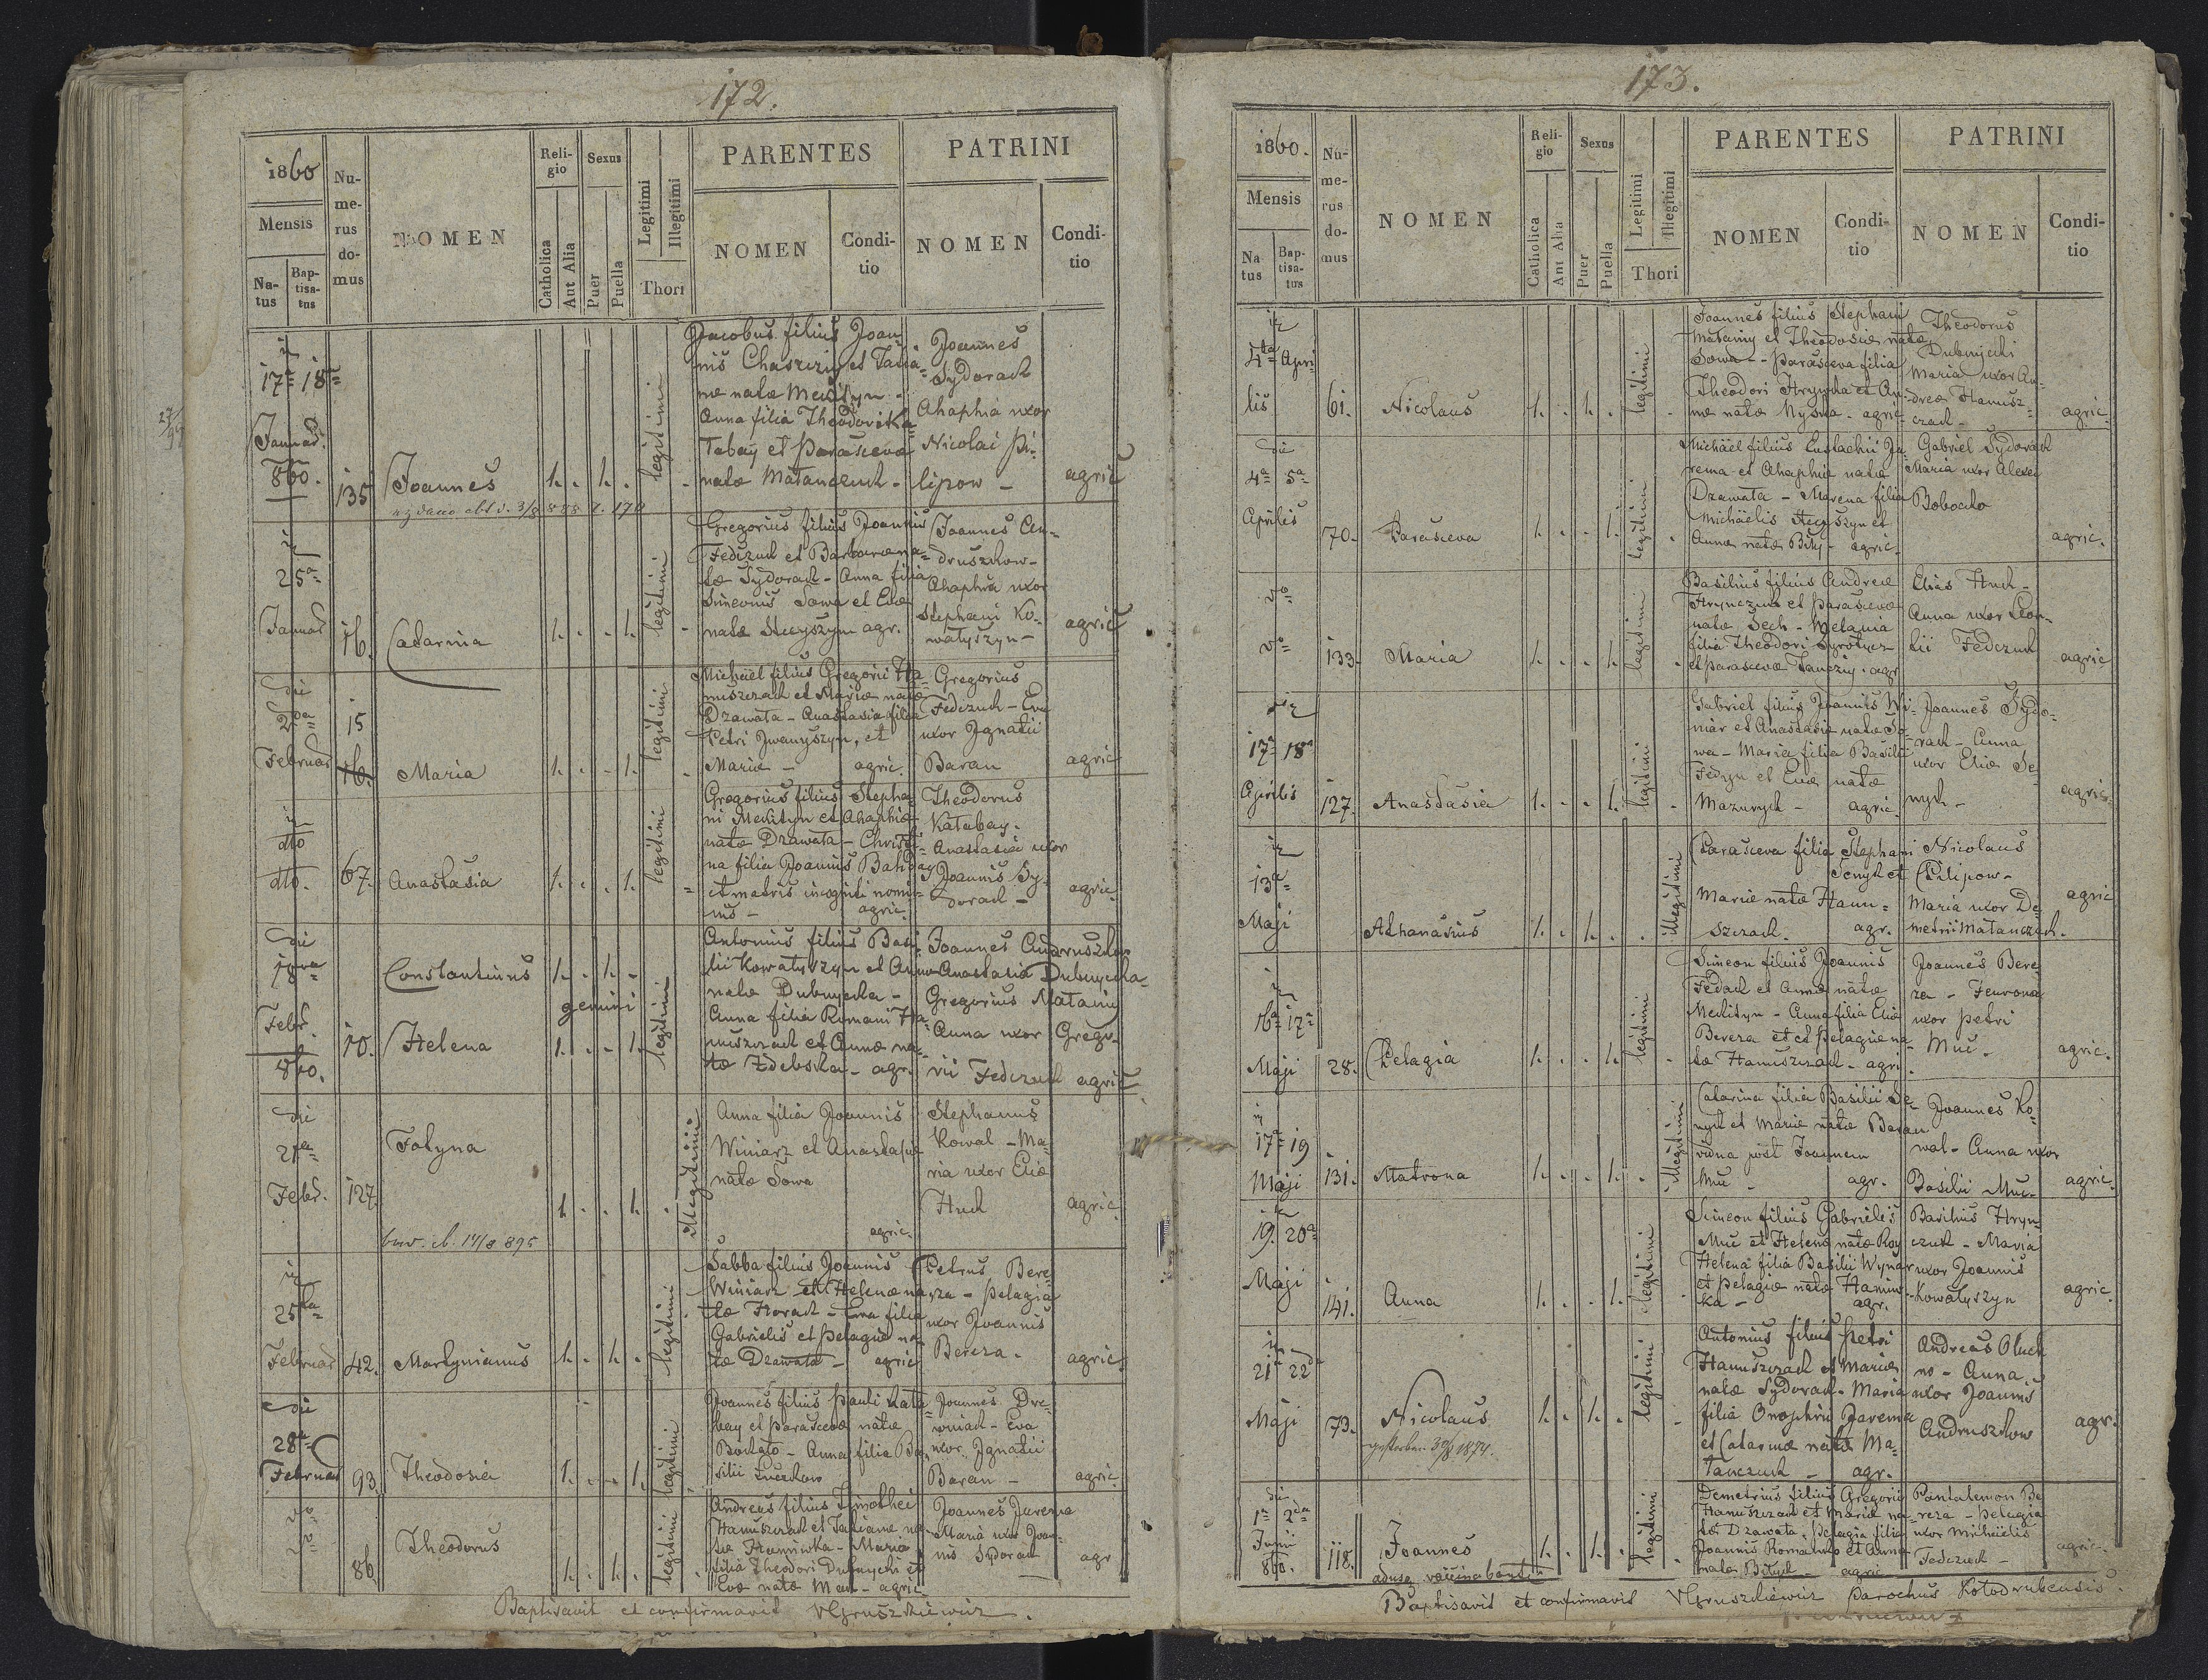 172.
1860
Mensis
Na-
tus
Bap-
tisa-
tus
Nu-
me-
rus
do-
mus
NOMEN
Reli-
gio
Catholica
Aut Alia
Sexus
Puer
Puella
Legitimi
Illegitimi
Thori
PARENTES
NOMEN
Condi-
tio
PATRINI
NOMEN
Condi-
tio
17a 18a
Januar.
860.
135
Joannes
1. . 1. .
legitimi
Jacobus filius Joan-
nis
et Tatia-
næ natæ Mekityn
Anna filia Theodori Ka-
tabay et Parascevæ
natæ Matanczuk -
Joannes
Sydorach
Ahaphia uxor
Nicolai Pi-
lipow -
agric
25a
Januar
16.
Catarina
1. . . 1.
legitimi
Gregorius filius Joannis
Fedczuk et Barbaræ na-
tæ Sydorach - Anna filia
Simeonis Sowa et Evæ
natæ Stecyszyn agr.
Joannes An-
druszkow -
Ahaphia uxor
Stephani Ko-
watyszyn -
agric
die
2da
Februar
15
16.
Maria
1. . . 1.
legitimi
Michael filius Gregorii Ha-
nuszczak et Mariæ natæ
Dzawata - Anastasia filia
Petri Iwanyszyn, et
Mariæ - agric.
Gregorius
Fedczuk - Eva
uxor Ignatii
Baran
agric
dto
dto.
67.
Anastasia
1. . . 1.
legitimi
Gregorius filius Stepha-
ni Mekityn et Ahaphiæ
natæ Dzawata - Christi-
na filia Joannis Bahday
et matris incogniti nomi-
nis - agric.
Theodorus
Katabay.
Anastasia uxor
Joannis Sy-
dorach -
agric.
die
18va
Febr.
860.
10.
Constantinus
gemini
Helena
1. . 1. .
1. . . 1.
legitimi
Antonius filius Basi-
lii Kowatyszyn et Annæ
natæ Dubnycka -
Anna filia Romani Ha-
nuszczak et Annæ na-
tæ Zdebska - agr.
Joannes Andruszkow
Anastasia Dubnycka
Gregorius Matainy
Anna uxor Grego-
rii Fedczuk agric
die
21a
Febr.
127
Fotyna
1. . . 1.
illegitimi
Anna filia Joannis
Winiarz et Anastasiæ
natæ Sowa
agric.
Stephanus
Kowal - Ma-
ria uxor Eliæ
Huk
agric
25ta
Februar
42.
Martynianus
1. . 1. .
legitimi
Sabba filius Joannis
Winiarz et Helenæ na-
tæ Horach - Eva filia
Gabrielis et Pelagiæ na-
tæ Dzawata - agric
Petrus Bere-
za - Pelagia
uxor Joannis
Bereza.
agric
die
28a
Februar
93.
Theodosia
1. . . 1.
legitimi
Joannes filius Pauli Kata-
bay et Parascevæ natæ
- Anna filia Ba-
silii
Joannes Dre-
wniak - Eva
uxor Ignatii
Baran -
agric
86.
Theodorus
1. . 1. .
legitimi
Andreas filius Timothei
Hanuszczak et Tatianæ na-
tæ Haniwka - Maria
filia Theodori Dubnycki et
Evæ natæ - agric
Joannes Jarema
Maria uxor Joan-
nis Sydorach
agr
Baptisavit et confirmavit VGruszkiewicz.
173.
1860.
Mensis
Na-
tus
Bap-
tisa-
tus
Nu-
me-
rus
do-
mus
NOMEN
Reli-
gio
Catholica
Aut Alia
Sexus
Puer
Puella
Legitimi
Illegitimi
Thori
PARENTES
NOMEN
Condi-
tio
PATRINI
NOMEN
Condi-
tio
4ta Apri-
lis
61.
Nicolaus
1. . 1. .
legitimi
Joannes filius Stephani
Matainy et Theodosiæ natæ
Sowa - Parasceva filia
Theodori et An-
næ natæ - agric
Theodorus
Dubnycki
Maria uxor An-
dreæ Hanusz-
czak -
agric.
die
4a 5a
Aprilis
70.
Parasceva
1. . . 1.
legitimi
Michael filius Eustachii Ja-
rema et Ahaphiæ natæ
Dzawata - Marena filia
Michaelis Stecyszyn et
Annæ natæ - agric.
Gabriel Sydorach
Maria uxor Alexei
agric.
133.
Maria
1. . . 1.
legitimi
Basilius filius Andreæ
Hrynczuk et Parascevæ
natæ - Melania
filia Theodori
et Parascevæ - agr
Elias Huk -
Anna uxor Leon-
tii Fedczuk
agric
17a 18a
Aprilis
127.
Anastasia
1. . . 1.
legitimi
Gabriel filius Joannis Wi-
niar et Anastasiæ natæ So-
wa - Maria filia Basilii
et Evæ natæ
Mazuryk - agric
Joannes Sydo-
rach - Anna
uxor Eliæ Se-
nyk -
agric.
13a
Maji
Athanasius
1. . 1. .
illegitimi
Parasceva filia Stephani
Senyk et
Mariæ natæ Hanu-
szczak. agr.
Nicolaus
Pilipow -
Maria uxor De-
metrii Matanczuk.
agric
16a 17a
Maji
28.
Pelagia
1. . . 1.
legitimi
Simeon filius Joannis
Fedak et Annæ natæ
Mekityn - Anna filia Eliæ
Bereza et Pelagiæ na-
tæ Hanuszczak - agri.
Joannes Bere-
za - Fevrona
uxor Petri
Muc.
agric.
17a 19
Maji
131.
Matrona
1. . . 1.
illegitimi
Catarina filia Basilii Se-
nyk et Mariæ natæ Baran
vidua post Joannem
Muc - agr.
Joannes Ko-
wal - Anna uxor
Basilii Muc -
agric.
19. 20a
Maji
141.
Anna
1. . . 1.
legitimi
Simeon filius Gabrielis
Muc et Helenæ natæ
Helena filia Basilii Wyniar
et Pelagiæ natæ Haniw-
ka - agr.
Basilius Hryn-
czuk - Maria
uxor Joannis
Kowatyszyn
agric.
21a 22da
Maji
73.
Nicolaus
gestorben 30/8 1874.
1. . 1. .
legitimi
Antonius filius Petri
Hanuszczak et Mariæ
natæ Sydorach - Maria
filia Onophrii Jarema
et Catarinæ natæ Ma-
tanczuk - agr.
Andreas
- Anna
uxor Joannis
Andruszkow
agr.
die
1a 2da
Junii
860.
118.
Joannes
1. . 1. .
legitimi
Demetrius filius Gregorii
Hanuszczak et Mariæ na-
tæ Dzawata, Pelagia filia
Joannis Romanko et Annæ
natæ - agric
Pantalemon Be-
reza - Pelagia
uxor Michaelis
Fedczuk -
agric.
Baptisavit et confirmavit VGruszkiewicz Parochus Kotodrubensis.